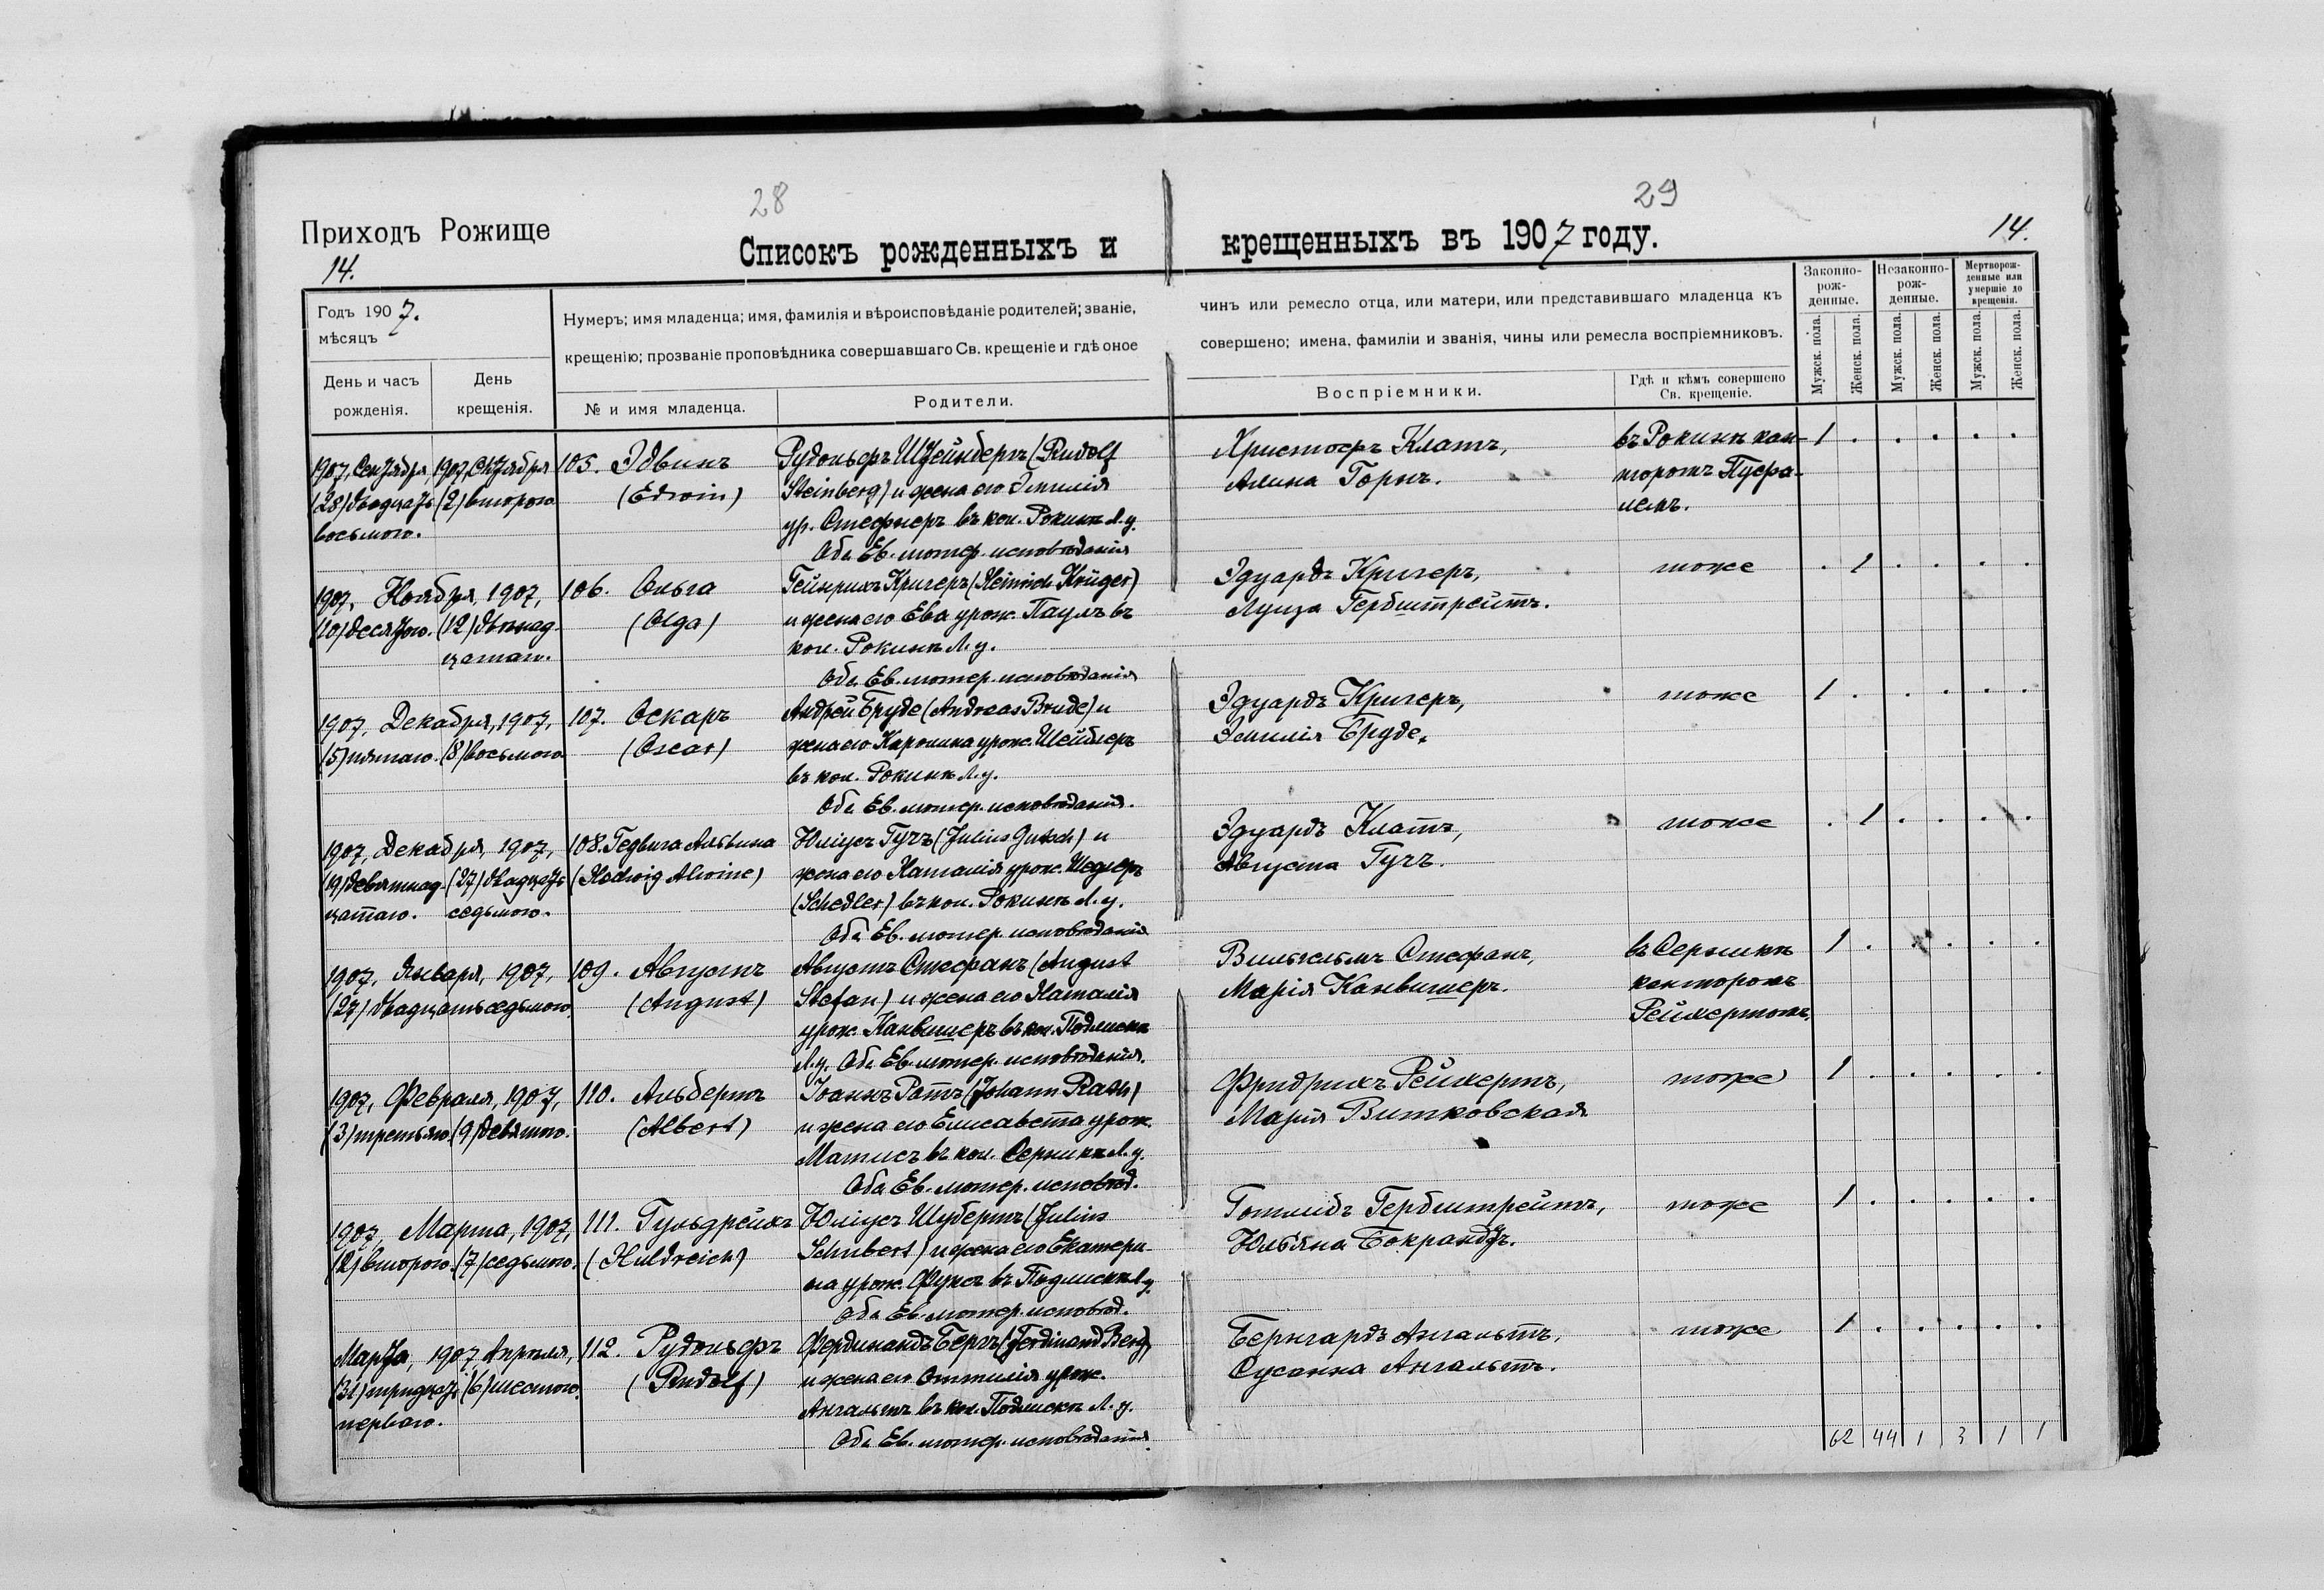 28
29
Приходъ Рожище
14.
Списокъ рожденныхъ и
крещенныхъ въ 1907 году.
14.
Годъ 1907.
мѣсяцъ
День и часъ
рожденія.
День
крещенія.
Нумеръ; имя младенца; имя, фамилія и вѣроисповѣданіе родителей; званіе,
крещенію; прозваніе проповѣдника совершавшаго Св. крещеніе и гдѣ оное
№ и имя младенца.
Родители.
чинъ или ремесло отца, или матери, или представившаго младенца къ
совершено; имена, фамиліи и званія, чины или ремесла воспріемниковъ.
Воспріемники.
Гдѣ и кѣмъ совершено
Св. крещеніе.
Законно-
рож-
денные.
Незаконно-
рож-
денные.
Мертворож-
денные или
умершіе до
крещенія.
Мужск. пола.
Женск. пола.
Мужск. пола.
Женск. пола.
Мужск. пола.
Женск. пола.
1907, Сентября,
(28) двадцать
восьмого.
1907, Октября
(2) второго
105. Эдвинъ
(Edwin)
Рудольфъ Штейнбергъ (Rudolf
Steinberg) и жена его Эмилія
ур. Стефнеръ въ кол. Рокинѣ Л. у.
Оба Ев. лютер. исповѣданія
Христофъ Клатъ,
Алина Горнъ.
въ Рокинѣ кан-
торомъ Пуфа-
лемъ.
1 . . . . .
1907, Ноября, 1907,
(10) десятого. (12) двѣнад-
цатаго.
106. Ольга
(Olga)
Гейнрихъ Кригеръ (Heinrich Krüger)
и жена его Ева урож. Паулъ въ
кол. Рокинѣ Л. у.
Оба Ев. лютер. исповѣданія
Эдуардъ Кригеръ,
Луиза Гербштрейтъ.
тоже
. 1 . . . .
1907, Декабря, 1907,
(5) пятаго. (8) восьмого
107. Оскаръ
(Oscar)
Андрей Бруде (Andreas Brude) и
жена его Каролина урож. Шейблеръ
въ кол. Рокинѣ Л. у.
Оба Ев. лютер. исповѣданія.
Эдуардъ Кригеръ,
Эмилія Бруде.
тоже
1 . . . . .
1907, Декабря, 1907,
(19) девятнад-
цатаго.
(27) двадцать
седьмого.
108. Гедвига Альвина
(Hedwig Alwine)
Юліусъ Гучъ (Julius Gutsch) и
жена его Наталія урож. Шедлеръ
(Schedler) въ кол. Рокинѣ Л. у.
Оба Ев. лютер. исповѣданія
Эдуардъ Клатъ,
Августа Гучъ.
тоже
. 1 . . . .
1907, Января, 1907,
(27) двадцать седьмого
109. Августъ
(August)
Августъ Стефанъ (August
Stefan) и жена его Наталія
урож. Канвишеръ въ кол. Подлискѣ
Л. у. Оба Ев. лютер. исповѣданія.
Вильгельмъ Стефанъ,
Марія Канвишеръ.
въ Серникѣ
канторомъ
Рейхертомъ.
1 . . . . .
1907, Февраля, 1907,
(3) третьяго (9) девятого.
110. Альбертъ
(Albert)
Іоаннъ Ратъ (Johann Rath)
и жена его Елисавета урож.
Матисъ въ кол. Серникѣ Л. у.
Оба Ев. лютер. исповѣд.
Фридрихъ Рейхертъ,
Марія Витковская
тоже
1 . . . . .
1907, Марта, 1907,
(2) второго. (7) седьмого.
111. Гульдрейхъ
(Huldreich)
Юліусъ Шубертъ (Julius
Schubert) и жена его Екатери-
на урож. Фуксъ въ Подлискѣ Л. у.
Оба Ев. лютер. исповѣд.
Готлибъ Гербштрейтъ,
Юльяна Бокрандтъ.
тоже
1 . . . . .
Марта, 1907, Апрѣля,
(31) тридцать
перваго.
(6) шестого.
112. Рудольфъ
(Rudolf)
Фердинандъ Бергъ (Ferdinand Berg)
и жена его Оттилія урож.
Ангальтъ въ кол. Подлискѣ Л. у.
Оба Ев. лютер. исповѣданія.
Бернгардъ Ангальтъ,
Сусанна Ангальтъ.
тоже
1 . . . . .
62 44 1 3 1 1